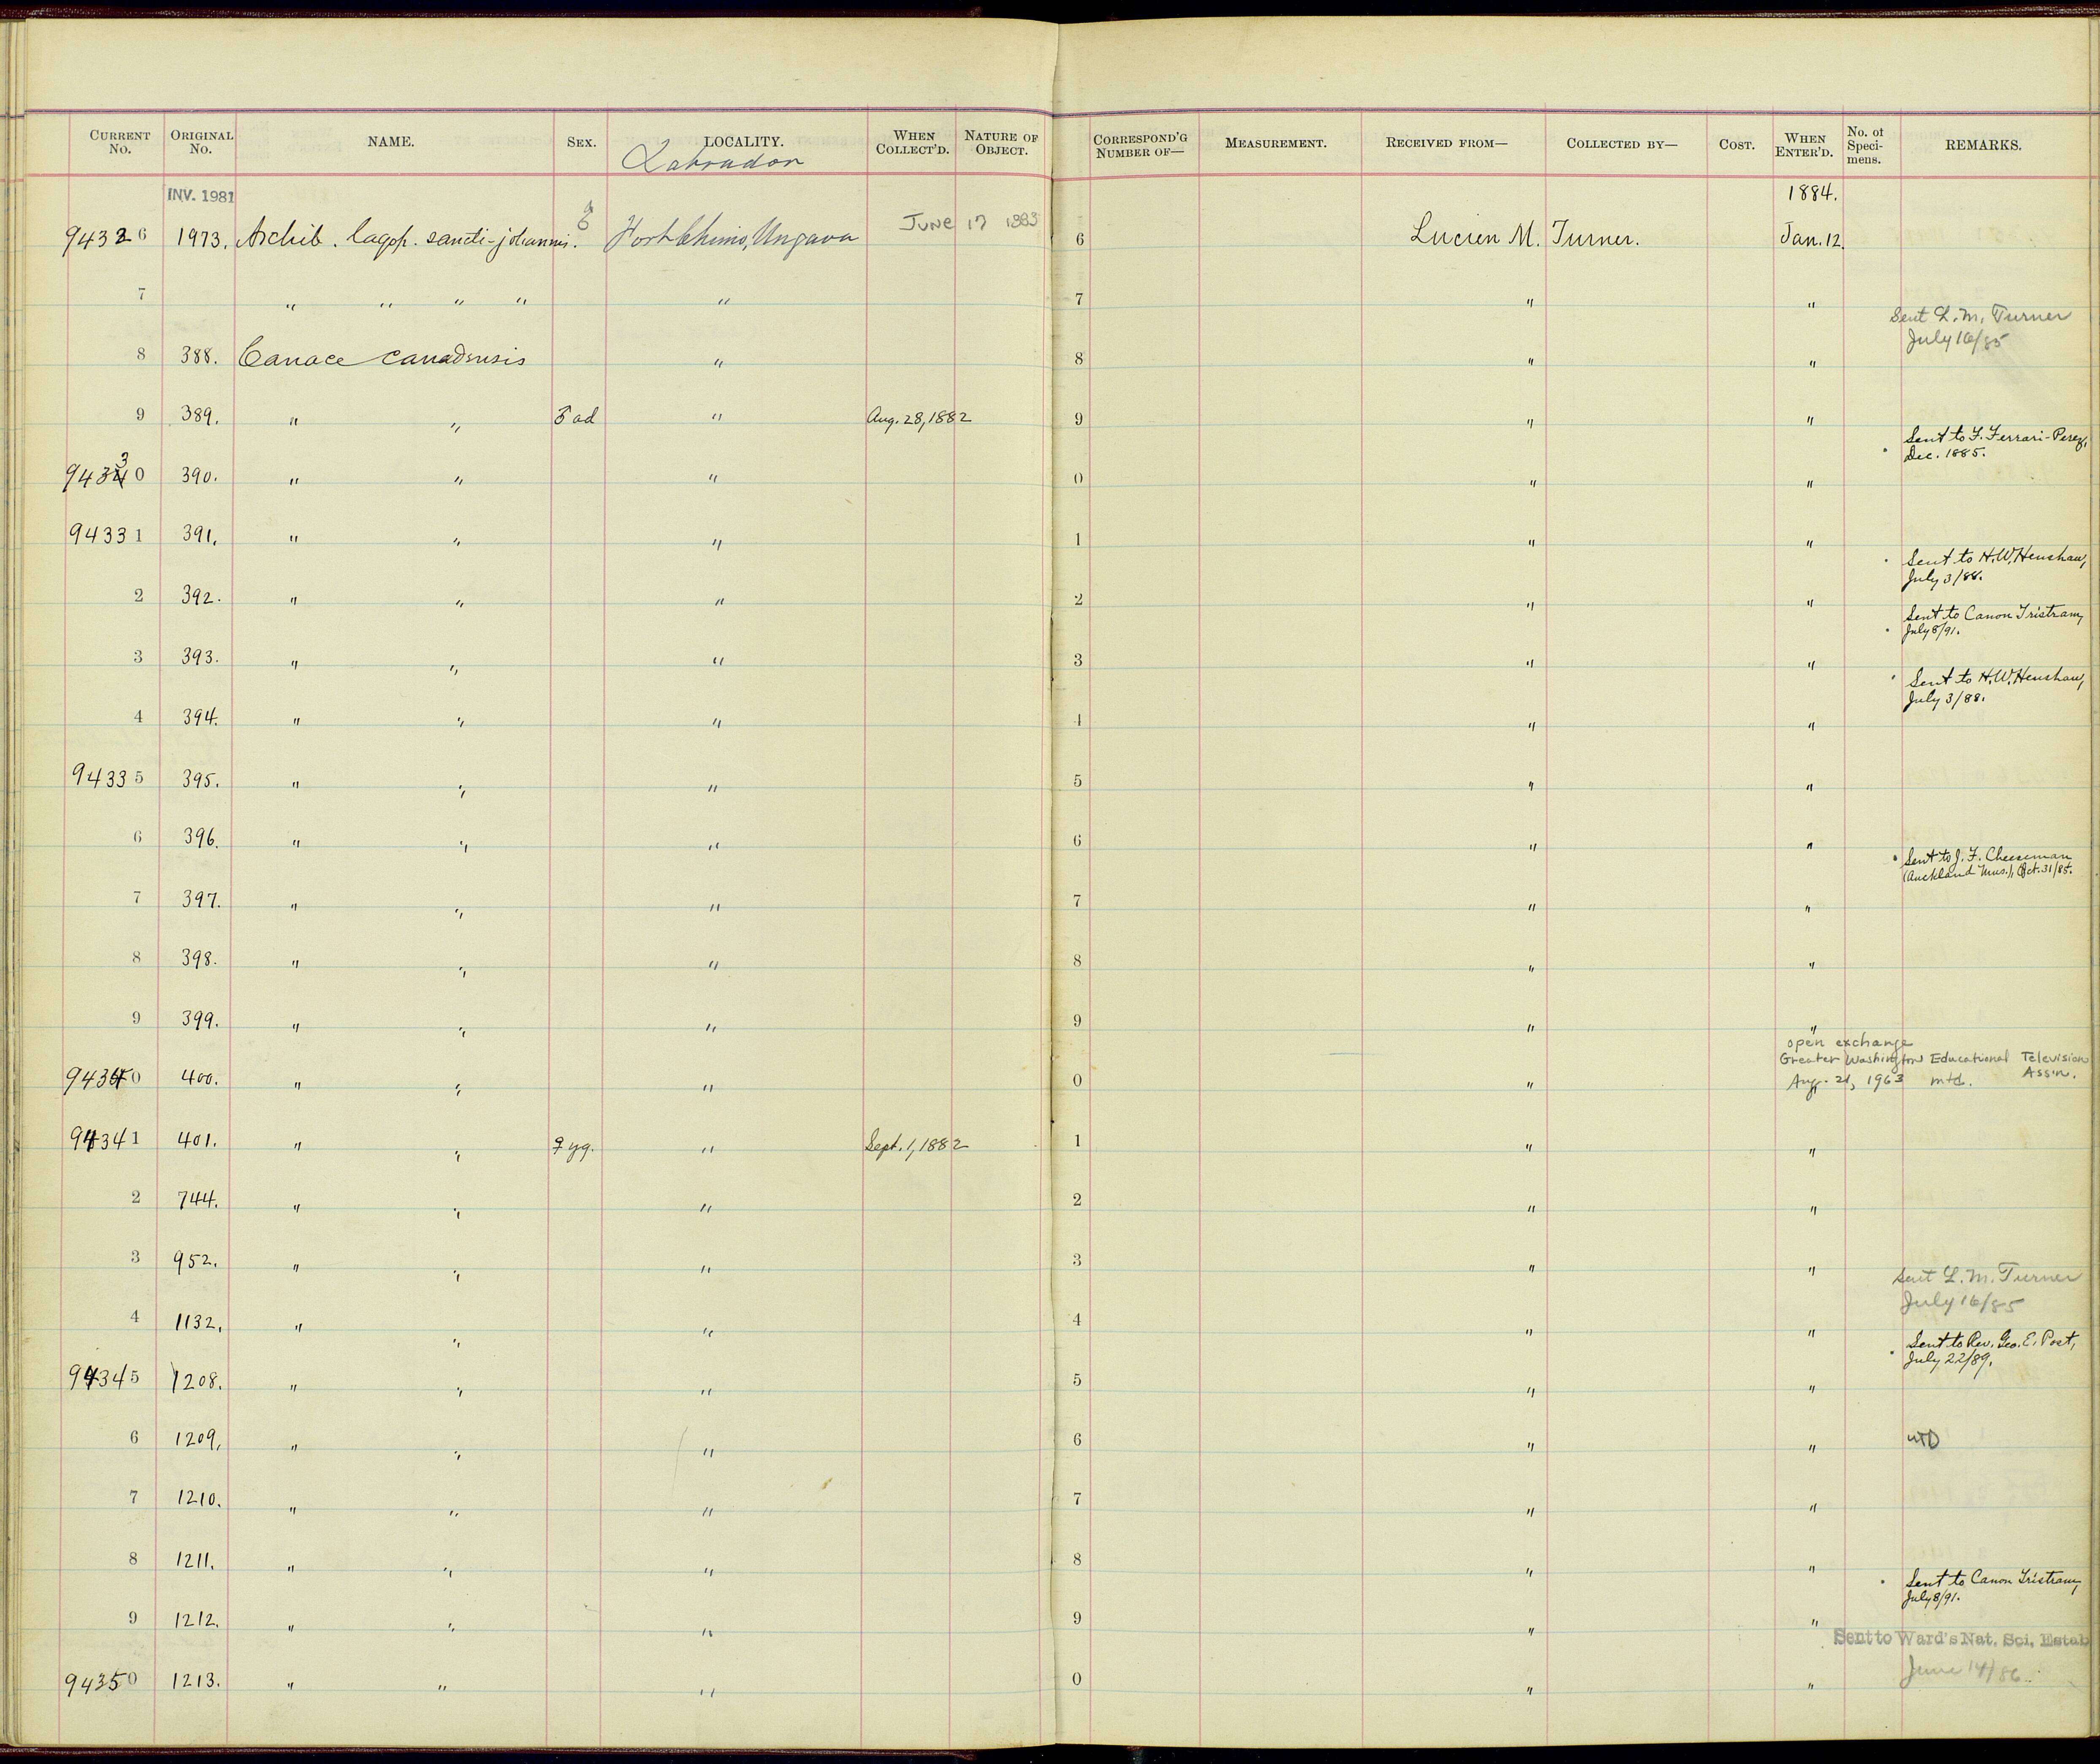 CURRENT No. ORIGINAL No. NAME. SEX. LOCALITY. WHEN COLLECT'D. NATURE OF OBJECT. CORRESPOND'G NUMBER OF— MEASUREMENT. RECEIVED FROM— COLLECTED BY— COST. WHEN ENTER'D. No. of Specimens. REMARKS.
Labrador
INV. 1981 1884.
94326 1973. Archib. lagop. sancti-johannis. Fort Chimo, Ungava JUNE 17 1883 6 Lucien M. Turner. Jan. 12.
7 " " " " " 7 " "
Sent L. M. Turner
July 16/85
8 388. Canace canadensis " 8 " "
9 389. " " ♂ ad " Aug. 28, 1882 9 " "
Sent to F. Ferrari-Perez,
Dec. 1885.
94330 390. " " " 0 " "
94331 391. " " " 1 " "
Sent to H. W. Henshaw,
July 3/88.
2 392. " " " 2 " "
Sent to Canon Tristram,
July 8/91.
3 393. " " " 3 " "
Sent to H. W. Henshaw,
July 3/88.
4 394. " " " 4 " "
94335 395. " " " 5 " "
6 396. " " " 6 " "
Sent to J. F. Cheeseman
(Auckland Mus.), Oct. 31/85.
7 397. " " " 7 " "
8 398. " " " 8 " "
9 399. " " " 9 " "
open exchange
Greater Washington Educational Television
Aug. 21, 1963 mtd. Ass'n.
94340 400. " " " 0 "
94341 401. " " ♀ yg. " Sept. 1, 1882 1 " "
2 744. " " " 2 " "
3 952. " " " 3 " "
Sent L. M. Turner
July 16/85
4 1132. " " " 4 " "
Sent to Rev. Geo. E. Post,
July 22/89.
94345 1208. " " " 5 " "
6 1209. " " " 6 " " MTD
7 1210. " " " 7 " "
8 1211. " " " 8 " "
Sent to Canon Tristram,
July 8/91.
9 1212. " " " 9 " "
Sent to Ward's Nat. Sci. Estab
June 14/86.
94350 1213. " " " 0 " "